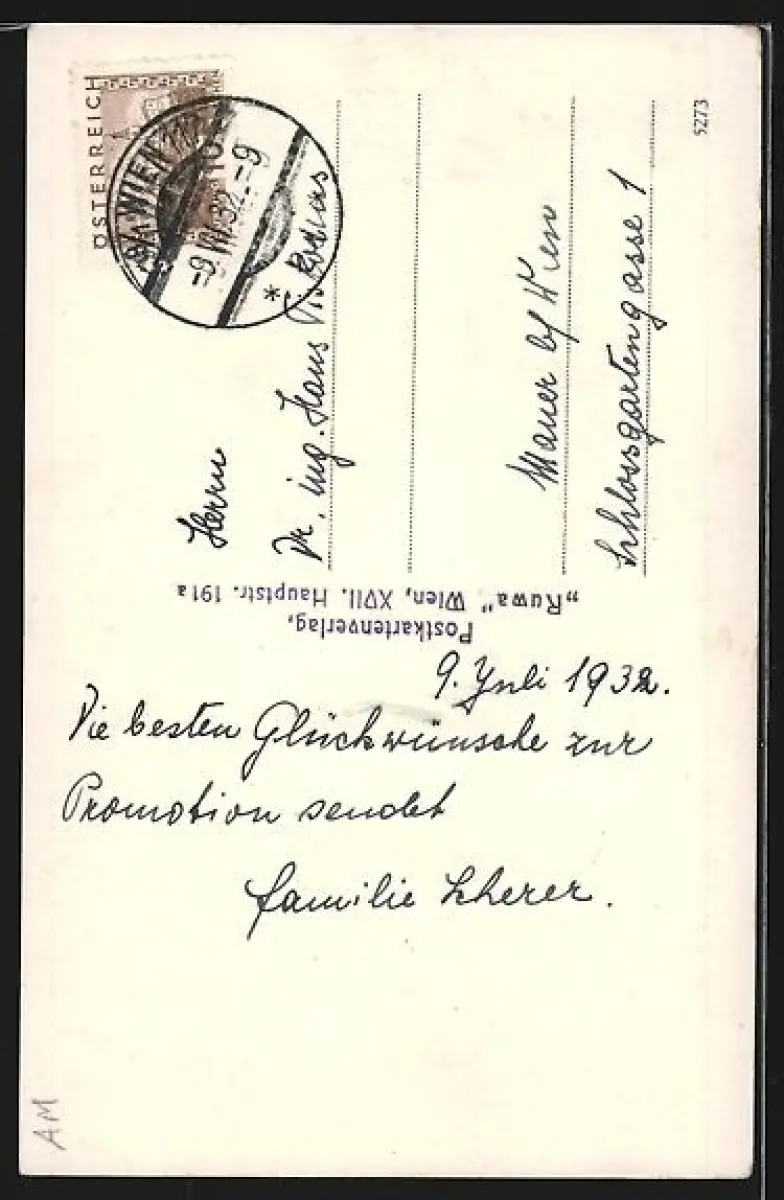 ÖSTERREICH
WIEN
-9.VII.32.-9
*
Herrn
Dr. ing. Hans
Mauer bei Wien
Schlossgartengasse 1
5273
Postkartenverlag,
„Ruwa" Wien, XVII. Hauptstr. 191a
9. Juli 1932.
Die besten Glückwünsche zur
Promotion sendet
Familie Scherer.
AM